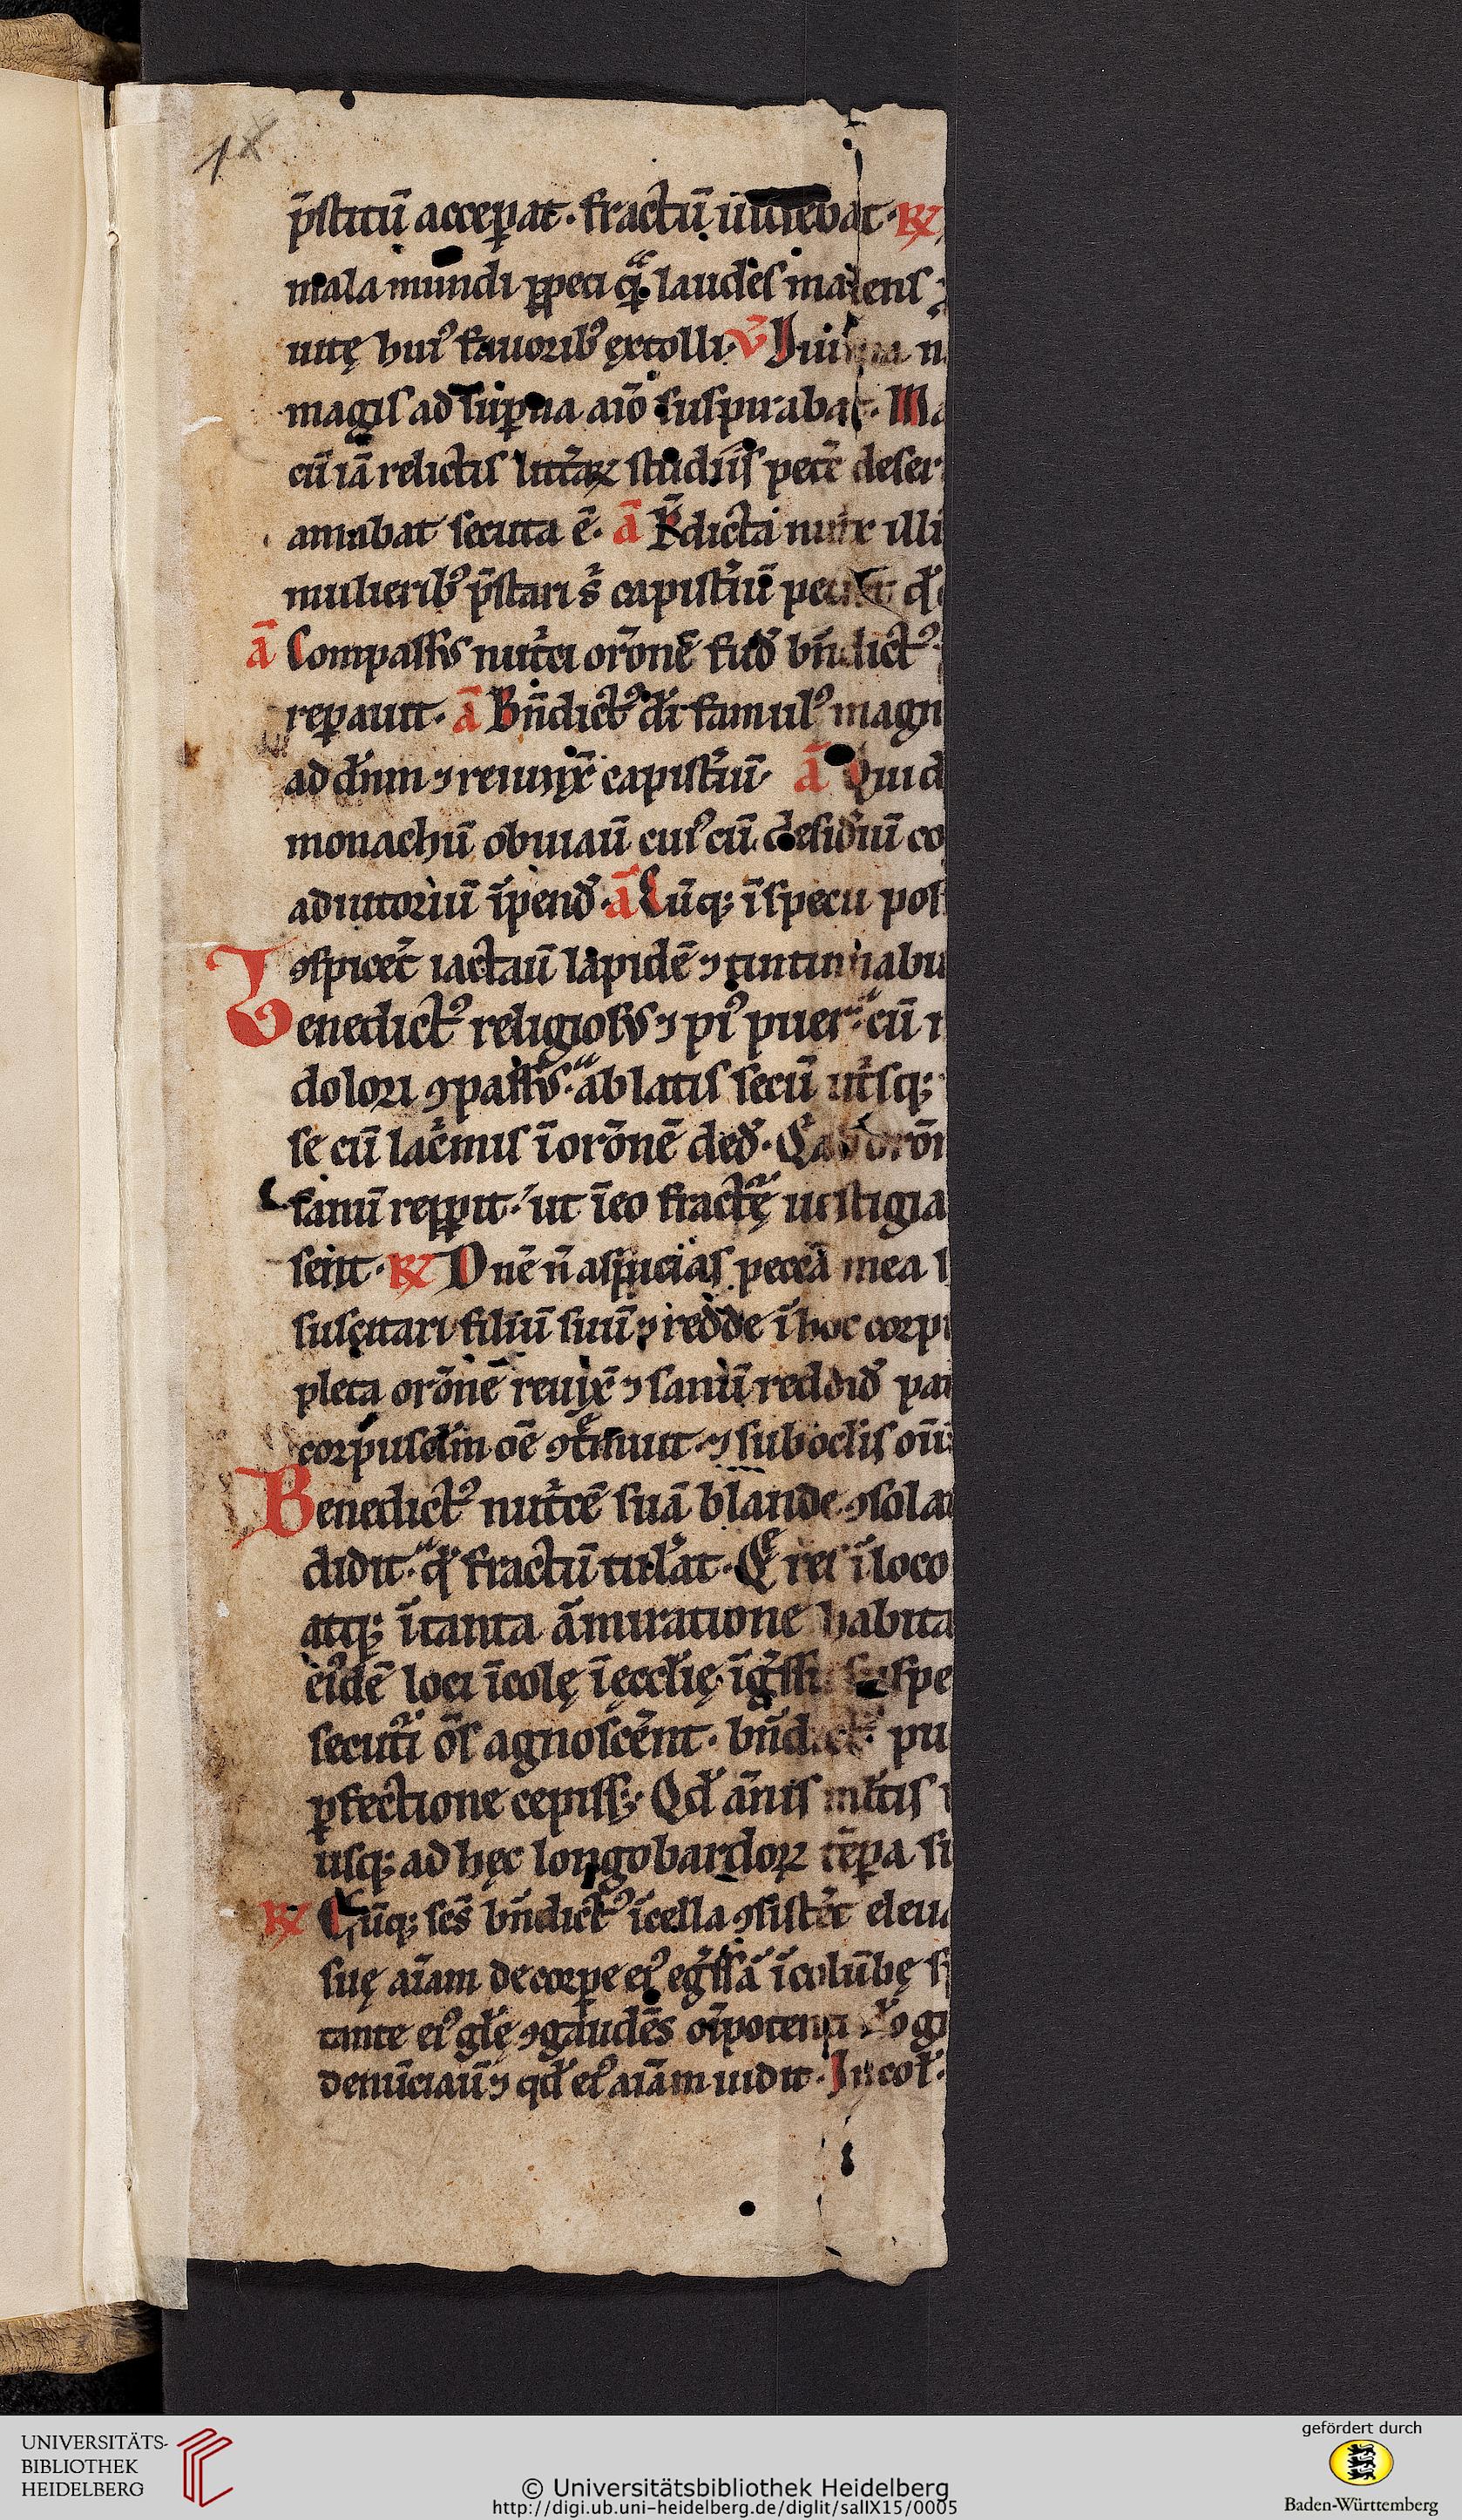 1
p̄stitū acceꝑat. fractū uidebat. R̸
mala mundi ꝑpeti qͣ laudes
uitę huiꝰ fauoribꝰ extolli. V̄ n
magis ad suꝑna aīo suspirabat. Ma
cū iā relictis litt̄aꝝ studiis peter̄ deser
amabat secuta ē. ā P̄dicta nutx illi
mulieribꝰ p̄stari s̄ capist̄iū
ā Compassus nut̄ci or̄onē fud̛ bn̄dictꝰ
reꝑauit. ā Bn̄dictꝰ di famulꝰ magn
ad dn̄m ⁊ reiunx̄ capist̄iū ā Quid
monachū obuiauī cuiꝰ cū desid̛iū co
adiutoriū īpend̛. ā Cūq; ī specu pos
T ꝯspicet̄ iactauī lapidē ⁊ tintinnabu
Benedictꝰ religiosus ⁊ piꝰ puer cū
dolori ꝯpassus. ablatis secū ut̄sq;
se cū lac̄mis ī or̄onē ded̛.
sanū repꝑit. ut ī eo fractę uestigia
seint. R̸ Dn̄e n̄ aspicias peccā mea
suscitari filiū suū ⁊ redde ī hoc corp
pleta or̄onē reuix̄ ⁊ sanū reddid̛
corpuscl̄m om̄ē ꝯtīnuit. ⁊ sub oclis
Benedictꝰ nut̄cē suā blande ꝯsola
didit. qd̛ fractū tul̛at. Q res ī loco
atq; ī tanta āmiratione habita
eiꝰdē loci īcolę ī ęcclię īgͥssu suspe
secut̄i om̄s agnoscēnt. bn̄dict pu
ꝑfectione cepiss;. Qd̛ ānis ml̄tis
usq; ad hęc longobardoꝝ tēꝑa si
R̸ Cūq; scs̄ bn̄dictꝰ ī cella ꝯsistet̄ eleua
suę aīam de corpe eiꝰ egͥssā ī colūbę s
tante eiꝰ gl̄ę ꝯgaudēs oīpotenti d̄o
denūciauī ⁊ qd̛ eiꝰ aīam uidit. In col̛.
UNIVERSITÄTS-
BIBLIOTHEK
HEIDELBERG
© Universitätsbibliothek Heidelberg
http://digi.ub.uni-heidelberg.de/diglit/salIX15/0005
gefördert durch
Baden-Württemberg